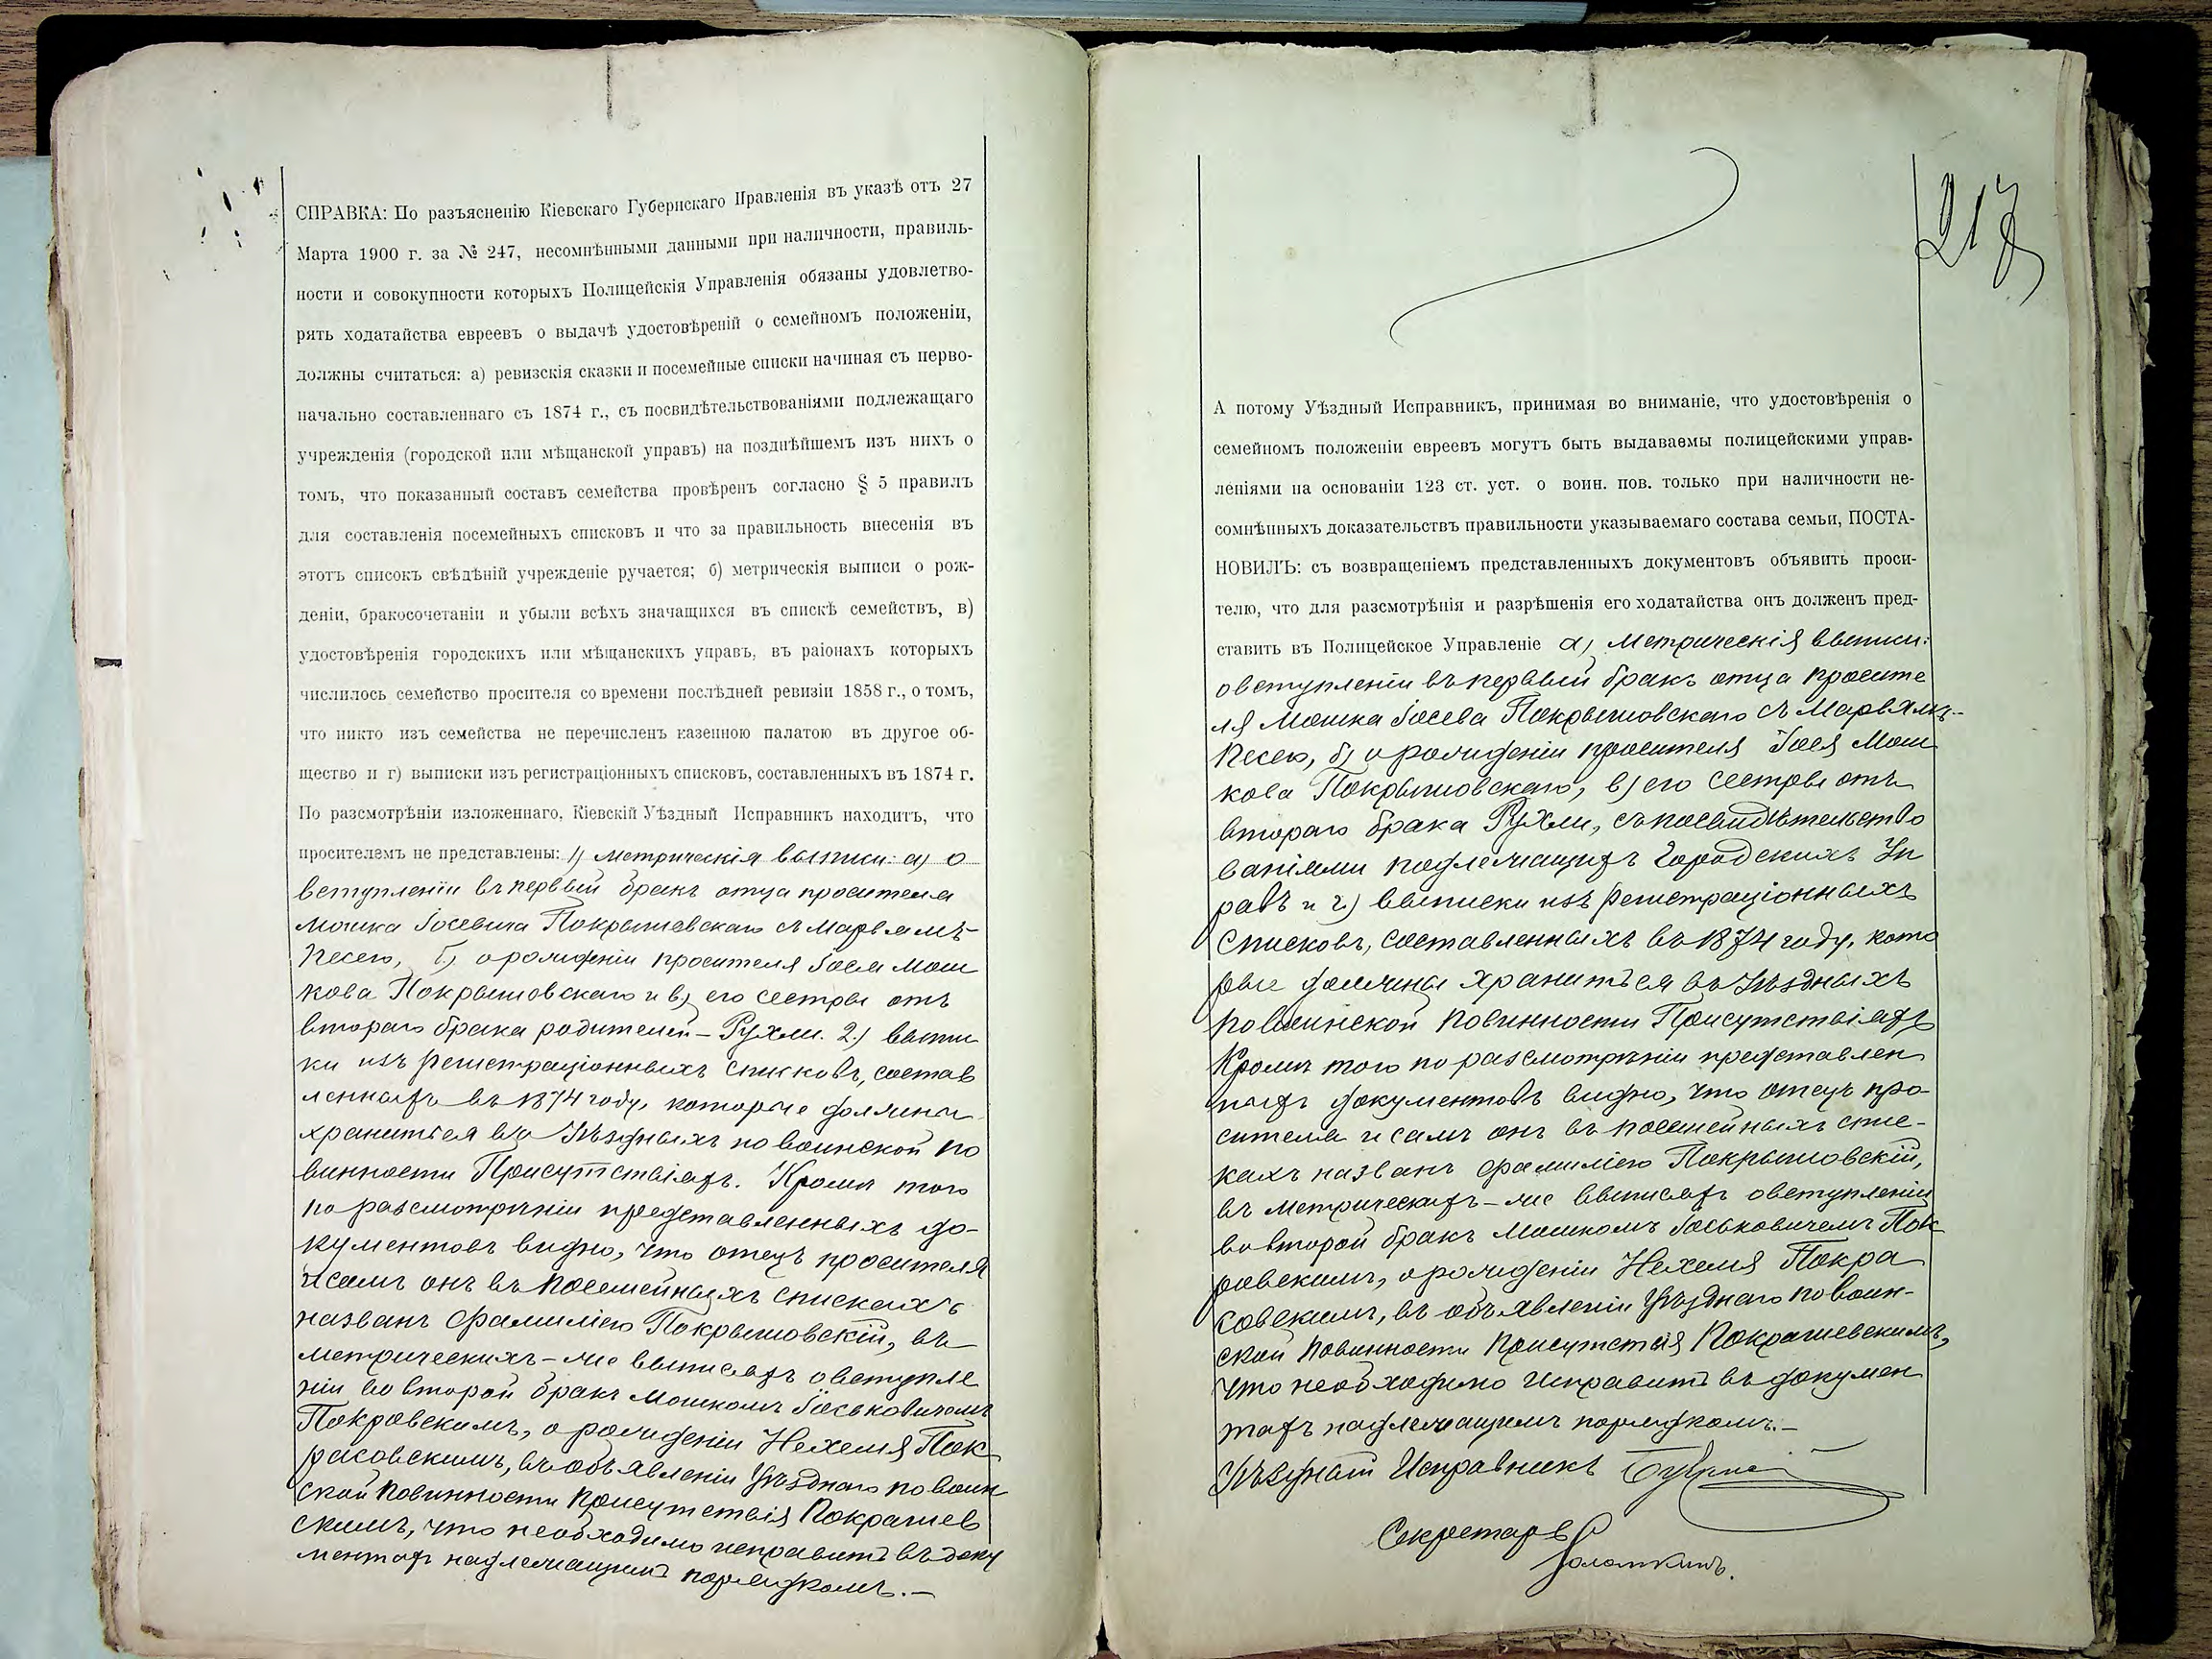 СПРАВКА: По разъясненію Кіевскаго Губернскаго Правленія въ указѣ отъ 27
Марта 1900 г. за № 247, несомнѣнными данными при наличности, правиль-
ности и совокупности которыхъ Полицейскія Управленія обязаны удовлетво-
рять ходатайства евреевъ о выдачѣ удостовѣреній о семейномъ положеніи,
должны считаться: а) ревизскія сказки и посемейные списки начиная съ перво-
начально составленнаго съ 1874 г., съ посвидѣтельствованіями подлежащаго
учрежденія (городской или мѣщанской управъ) на позднѣйшемъ изъ нихъ о
томъ, что показанный составъ семейства провѣренъ согласно § 5 правилъ
для составленія посемейныхъ списковъ и что за правильность внесенія въ
этотъ списокъ свѣдѣній учрежденіе ручается; б) метрическія выписи о рож-
деніи, бракосочетаніи и убыли всѣхъ значащихся въ спискѣ семействъ, в)
удостовѣренія городскихъ или мѣщанскихъ управъ, въ раіонахъ которыхъ
числилось семейство просителя со времени послѣдней ревизіи 1858 г., о томъ,
что никто изъ семейства не перечисленъ казенною палатою въ другое об-
щество и г) выписки изъ регистраціонныхъ списковъ, составленныхъ въ 1874 г.
По разсмотрѣніи изложеннаго, Кіевскій Уѣздный Исправникъ находитъ, что
просителемъ не представлены: 1) метрическія выписи: а) о
вступленіи въ первый бракъ отца просителя
Мошка Іосевича Покрышевскаго съ Марьямъ-
Песею, б) о рожденіи просителя Іося Мош
кова Покрышовскаго и в) его сестры отъ
втораго брака родителей – Рухли. 2) выпи
ки изъ регистраціонныхъ списковъ, состав
ленныхъ въ 1874 году, которые должны
храниться въ Уѣздныхъ по воинской по
винности Присутствіяхъ. Кромѣ того
по разсмотрѣніи представленныхъ до-
кументовъ видно, что отецъ просителя
и самъ онъ въ посемейныхъ спискахъ
названъ фамиліею Покрышовскій, въ
метрическихъ-же выписяхъ о вступле
ніи во второй бракъ Мошкомъ Іоськовичемъ
Покровскимъ, о рожденіи Нехемя Пок
расовскимъ, въ объявленіи Уѣзднаго по воин
ской повинности Присутствія Покрашев
скимъ, что необходимо исправить въ доку
ментахъ надлежащимъ порядкомъ. –
217
А потому Уѣздный Исправникъ, принимая во вниманіе, что удостовѣренія о
семейномъ положеніи евреевъ могутъ быть выдаваемы полицейскими управ-
леніями на основаніи 123 ст. уст. о воин. пов. только при наличности не-
сомнѣнныхъ доказательствъ правильности указываемаго состава семьи, ПОСТА-
НОВИЛЪ: съ возвращеніемъ представленныхъ документовъ объявить проси-
телю, что для разсмотрѣнія и разрѣшенія его ходатайства онъ долженъ пред-
ставить въ Полицейское Управленіе а) Метрическія выписи:
о вступленіи въ первый бракъ отца просите
ля Мошка Іосева Покрышовскаго съ Марьямъ-
Песею, б) о рожденіи просителя Іося Мош
кова Покрышовскаго, в) его сестры отъ
втораго брака Рухли, съ посвидѣтельство
ваніями надлежащихъ Городскихъ Уп
равъ и г) выписки изъ регистраціонныхъ
списковъ, составленныхъ въ 1874 году, кото
рые должны храниться въ Уѣздныхъ
по воинской повинности Присутствіяхъ
Кромѣ того по разсмотрѣніи представлен
ныхъ документовъ видно, что отецъ про-
сителя и самъ онъ въ посемейныхъ спис-
кахъ названъ фамиліею Покрышовскій,
въ метрическихъ-же выписяхъ о вступленіи
во второй бракъ Мошкомъ Іоськовичемъ Пок
ровскимъ, о рожденіи Нехемя Покра
совскимъ, въ объявленіи Уѣзднаго по воин-
ской повинности Присутствія Покрашевскимъ,
что необходимо исправить въ докумен
тахъ надлежащимъ порядкомъ. –
Уѣздный Исправникъ
Секретарь